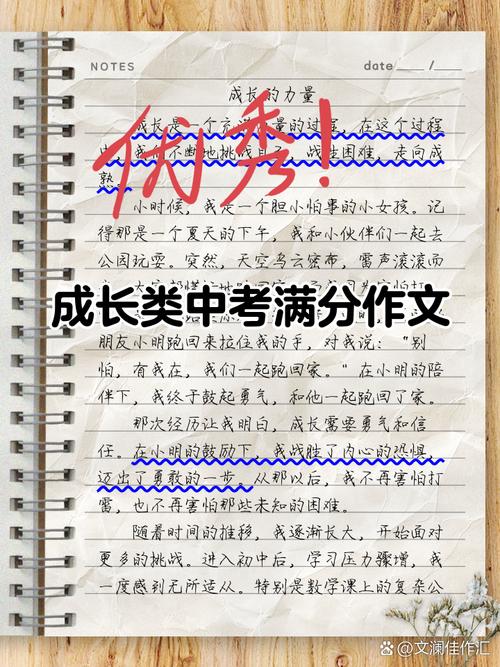 NOTES
date ___ / ___
成长的力量
成长是一个充满力量的过程，在这个过程
中，我们不断地挑战自己，战胜困难，走向成
熟。
优秀！
小时候，我是一个胆小怕事的小女孩。记
得那是一个夏天的下午，我和小伙伴们一起去
公园玩耍。突然，天空乌云密布，雷声滚滚而
成长类中考满分作文
朋友小明跑回来拉住我的手，对我说："别
怕，有我在，我们一起跑回家。"在小明的陪
伴下，我终于鼓起勇气，和他一起跑回了家。
那次经历让我明白，成长需要勇气和信
任。在小明的鼓励下，我战胜了内心的恐惧，
迈出了勇敢的一步。从那以后，我不再害怕打
雷，也不再害怕那些未知的困难。
随着时间的推移，我逐渐长大，开始面对
更多的挑战。进入初中后，学习压力骤增，我
一度感到无所适从。特别是数学课上的复杂公
文澜佳作汇